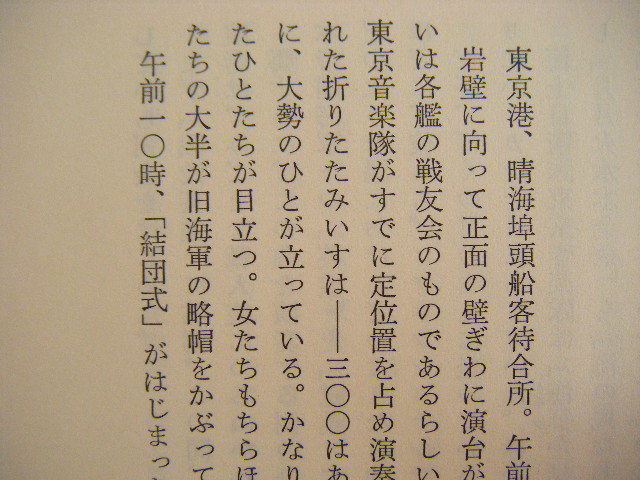 東京港、晴海埠頭船客待合所。午前
岩壁に向って正面の壁ぎわに演台が
いは各艦の戦友会のものであるらしい
東京音楽隊がすでに定位置を占め演奏
れた折りたたみいすは――三〇〇はあ
に、大勢のひとが立っている。かなり
たひとたちが目立つ。女たちもちらほ
たちの大半が旧海軍の略帽をかぶって
午前一〇時、「結団式」がはじまっ